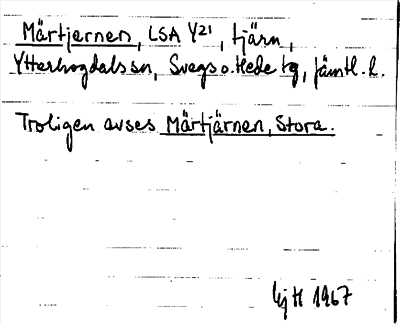 Märtjernen, LSA Y21, tjärn,
Ytterhogdals sn, Svegs o. Hede tg, Jämtl. l.
Troligen avses Märtjärnen, Stora.
EjH 1967